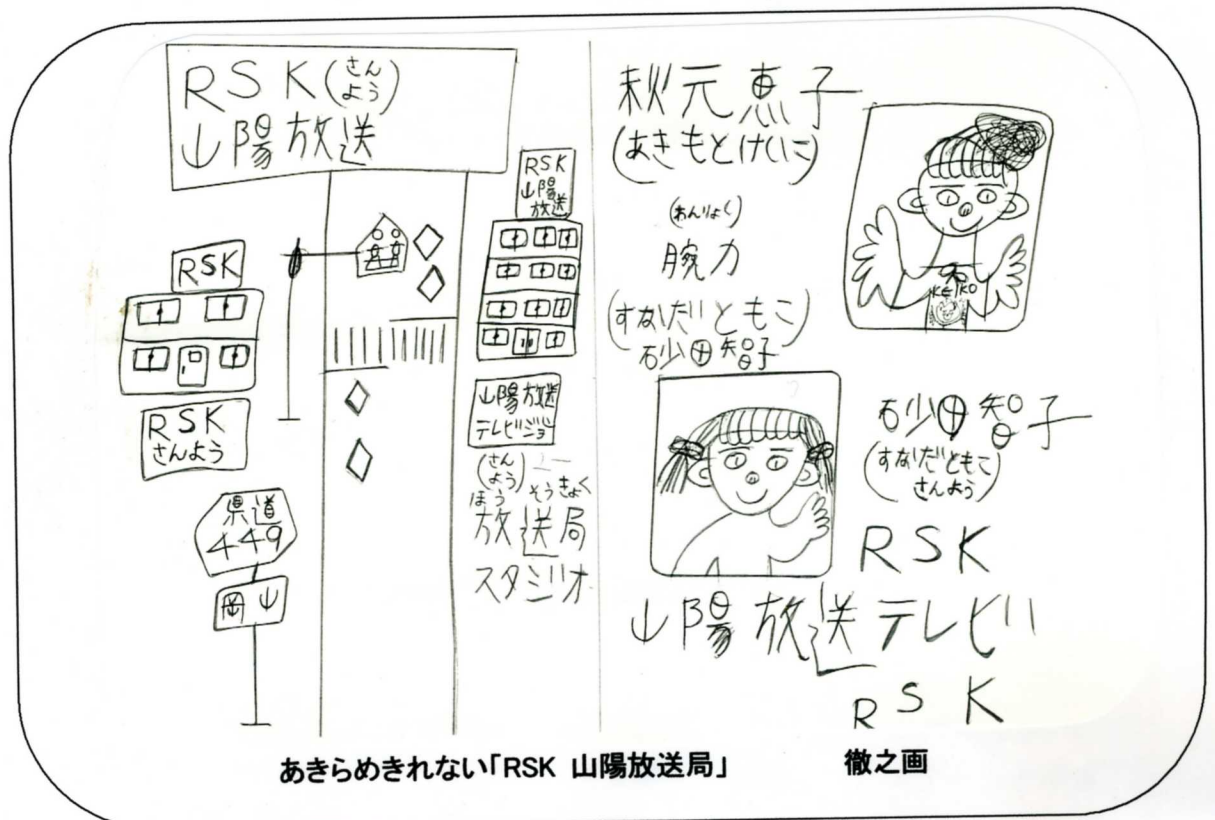 RSK(さんよう)
山陽放送
RSK
山陽
放送
RSK
RSK
さんよう
県道
449
岡山
山陽放送
テレビジョ
(さんよう)
ほうそうきょく
放送局
スタジオ
秋元恵子
(あきもとけいこ)
(わんりょく)
腕力
(すなだともこ)
砂田智子
KEIKO
砂田智子
(すなだともこ
さんよう)
RSK
山陽放送テレビ
RSK
あきらめきれない「RSK 山陽放送局」 徹之画